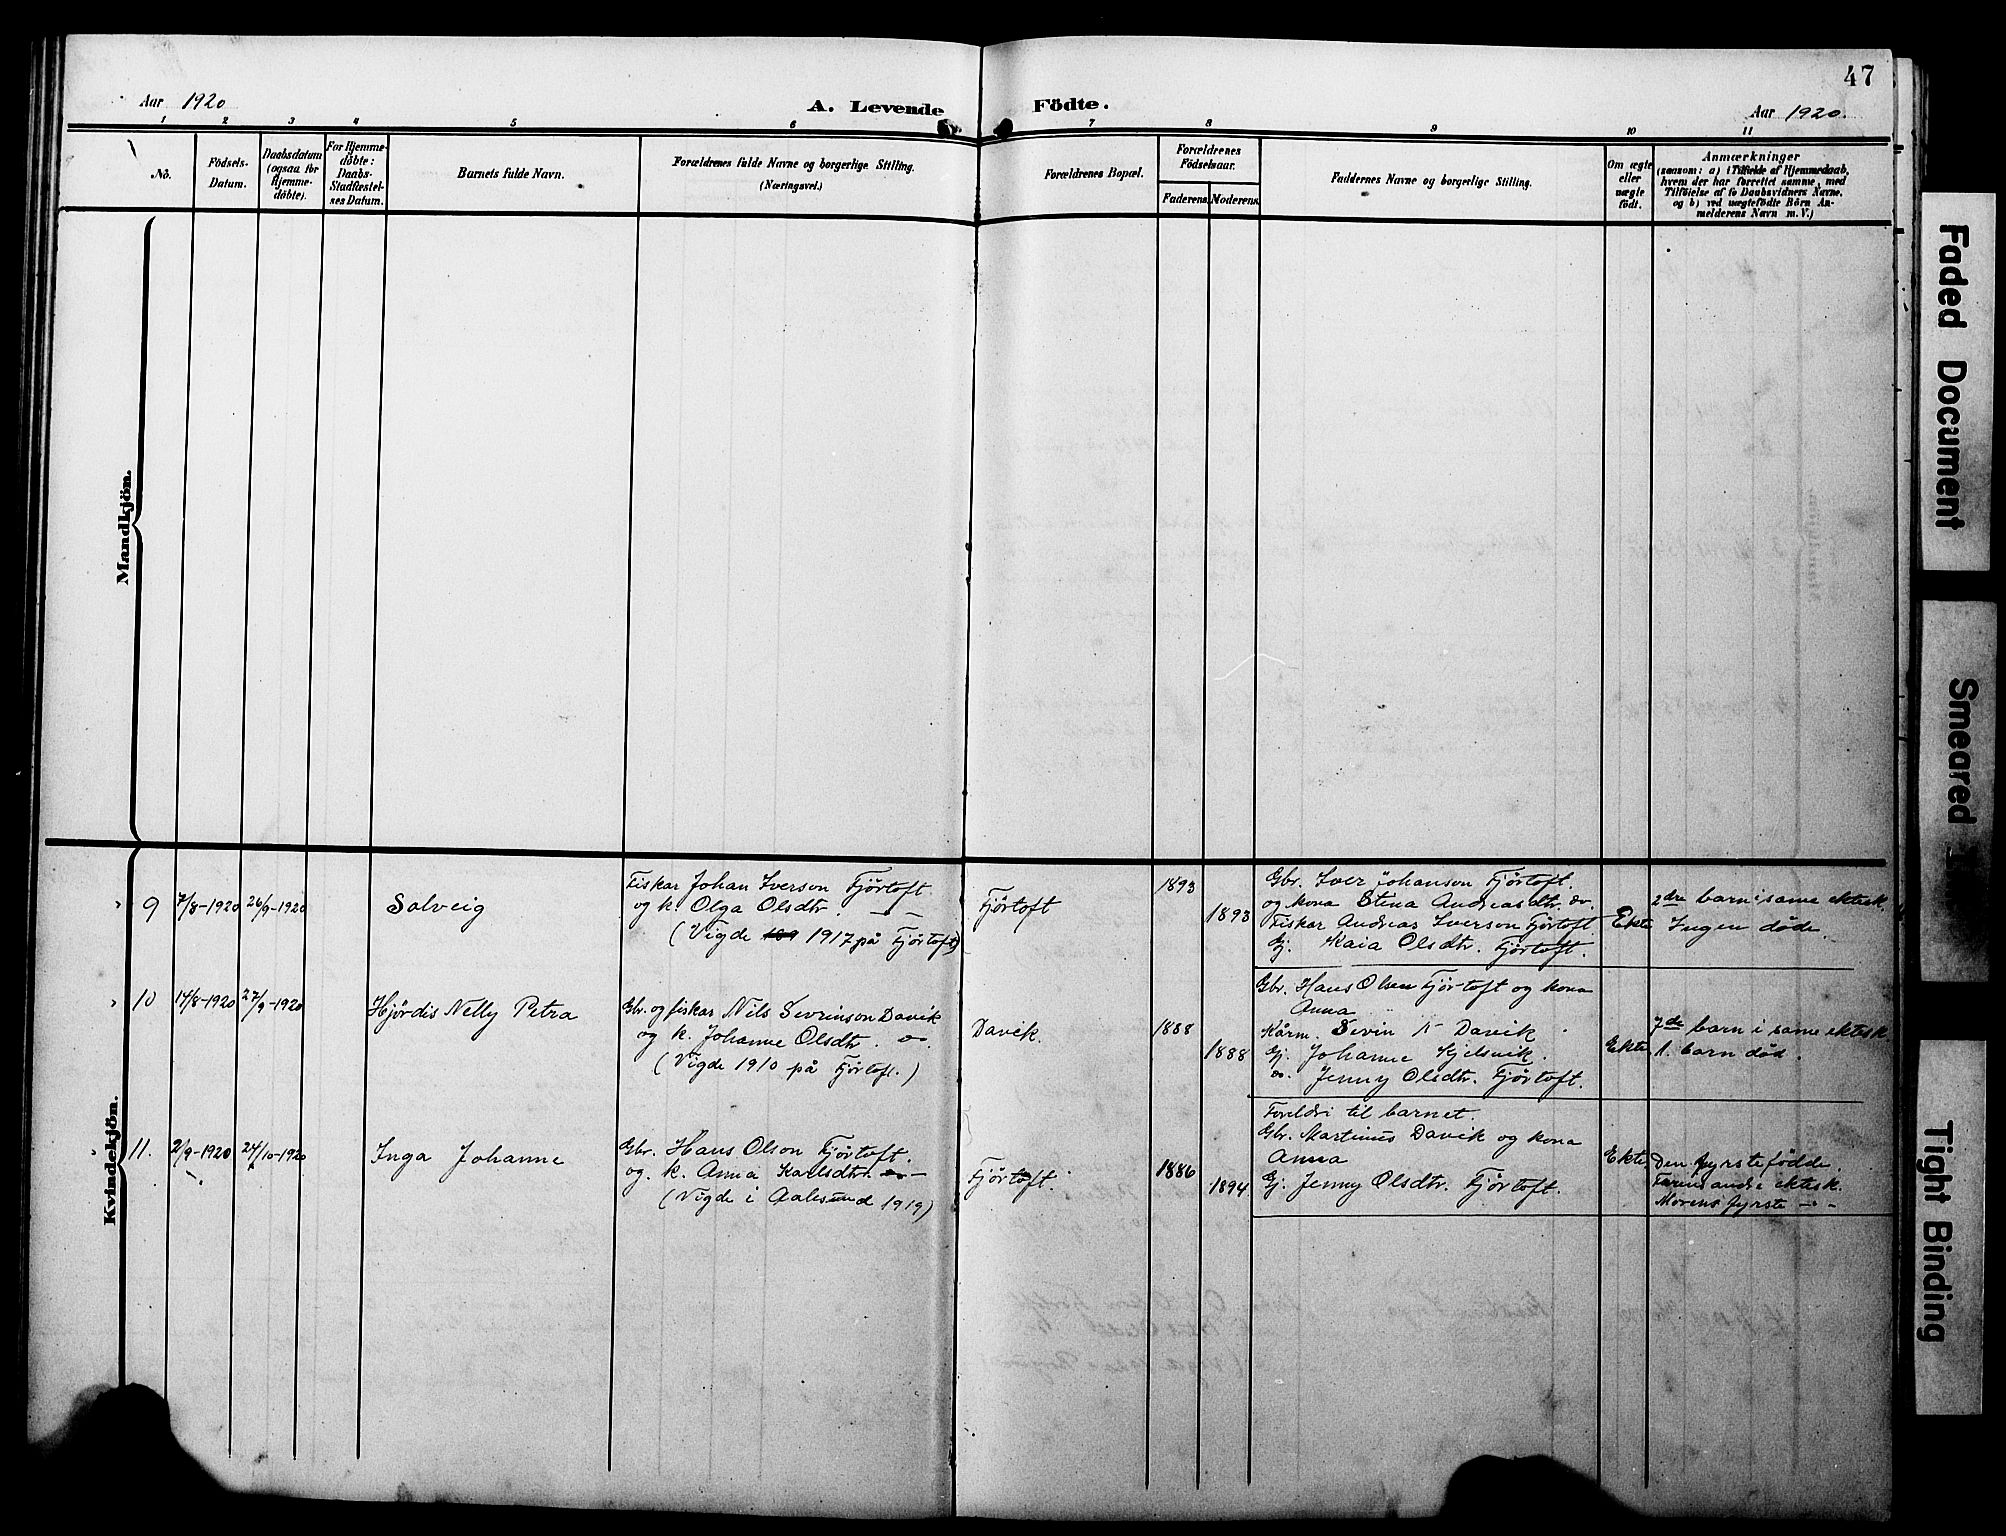 47
Aar 1920
A. Levende Födte.
Aar 1920.
1 2 3 4 5 6 7 8 9 10 11
No.
Födsels-
Datum.
Daabsdatum
(ogsaa for
Hjemme-
döbte).
For Hjemme-
döbte:
Daabs-
Stadfæstel-
ses Datum.
Barnets fulde Navn.
Forældrenes fulde Navne og borgerlige Stilling.
(Næringsvei.)
Forældrenes Bopæl.
Forældrenes
Födselsaar.
Faderens.
Moderens.
Faddernes Navne og borgerlige Stilling.
Om ægte
eller
uægte
födt.
Anmærkninger
(saasom: a) i Tilfælde af Hjemmedaab,
hvem der har forrettet samme, med
Tilföielse af to Daabsvidners Navne,
og b) ved uægtefödte Börn An-
melderens Navn m. V.)
Mandkjön.
Kvindekjön.
9
7/8-1920
26/9-1920
Solveig
Fiskar Johan Iverson Fjörtoft
og k. Olga Olsdtr. — –
(Vigde 1917 på Fjörtoft)
Fjörtoft
1893
1893
Gbr. Iver Johanson Fjörtoft.
og kona Stina Andreasdtr. do.
Fiskar Andreas Iverson Fjörtoft
Gj. Kaia Olsdtr. Fjörtoft.
Ekte
2dre barn i same ektesk.
Ingen døde.
10
14/8-1920
27/9-1920
Hjördis Nelly Petra
Gbr. og fiskar Nils Sevrinson Davik
og k. Johanne Olsdtr. do.
(Vigde 1910 på Fjörtoft.)
Davik.
1888
1888
Gbr. Hans Olsen Fjörtoft og kona
Anna
Kårm. Sevrin Davik
Gj. Johanne
do. Jenny Olsdtr. Fjörtoft.
Ekte
7de barn i same ektesk.
1. barn död.
11.
2/9-1920
24/10-1920
Inga Johanne
Gbr. Hans Olson Fjörtoft.
og. k. Anna Karlsdtr. —
(Vigde i Aalesund 1919)
Fjörtoft.
1886
1894
Foreldri til barnet.
Gbr. Martinus Davik og kona
Anna
Gj. Jenny Olsdtr. Fjörtoft.
Ekte
Den fyrstefödde.
Farens andre ektesk.
Morens fyrste — -
Faded Document
Smeared
Tight Binding